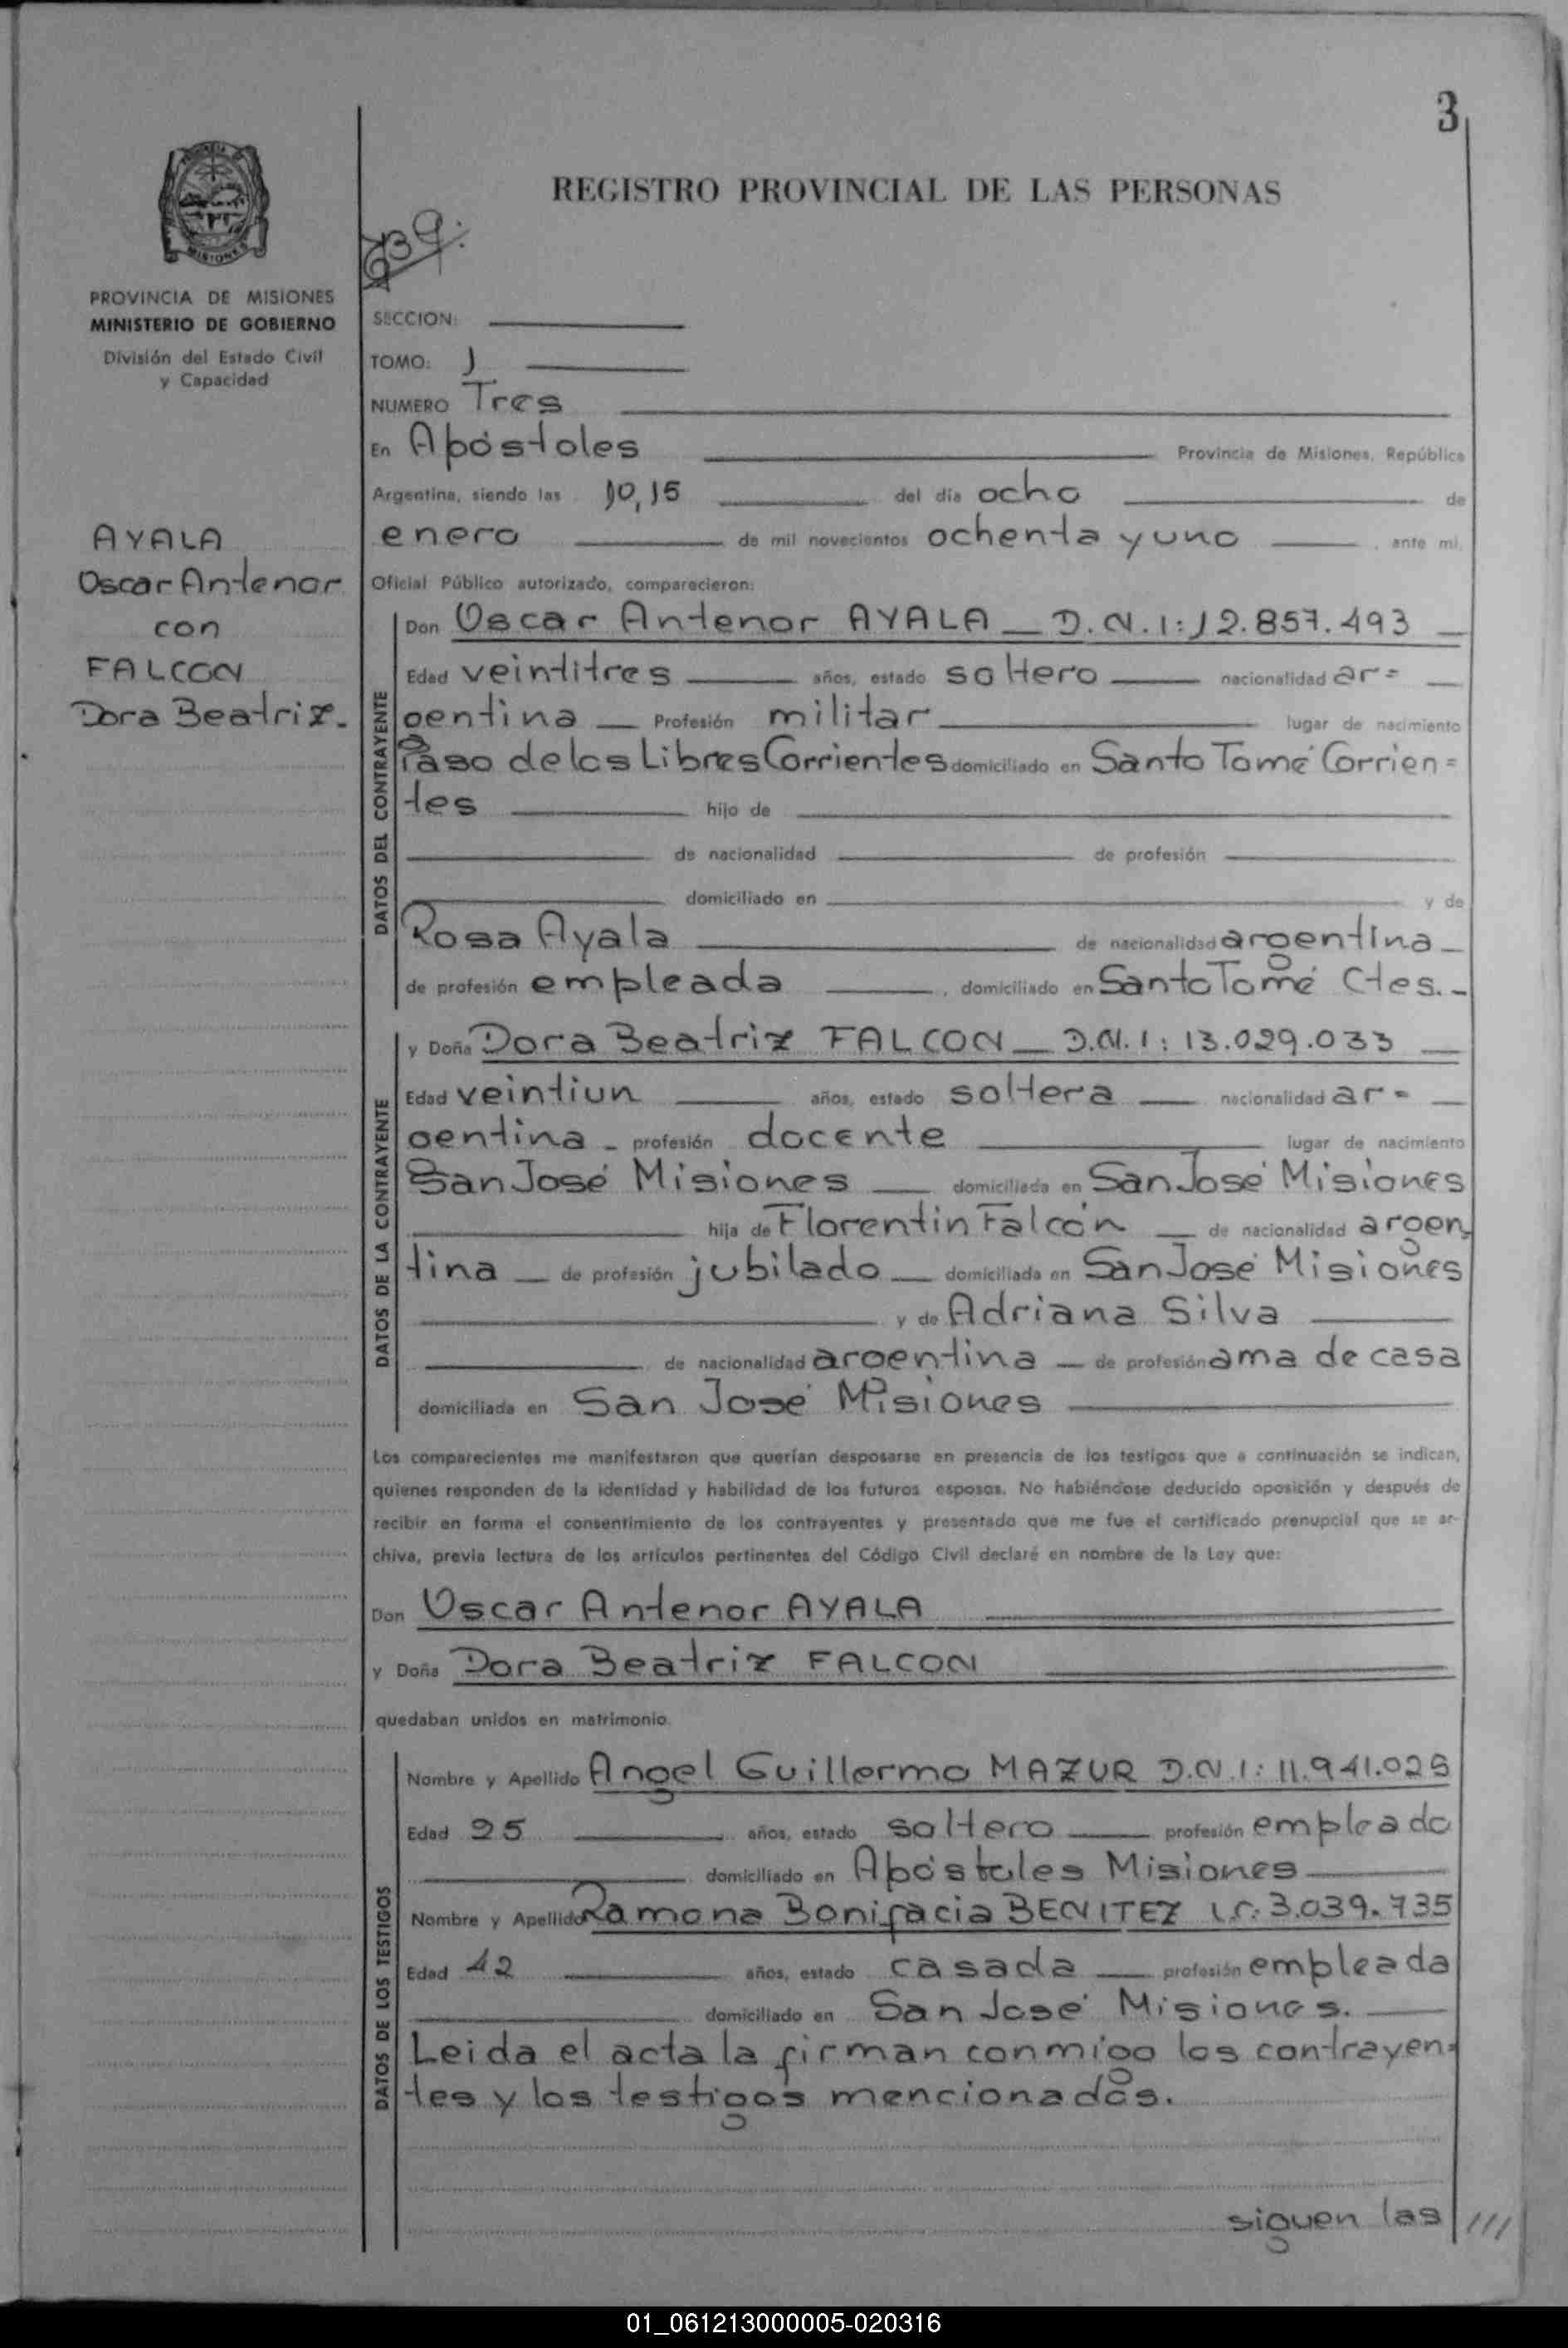 3
REGISTRO PROVINCIAL DE LAS PERSONAS
PROVINCIA DE MISIONES
MINISTERIO DE GOBIERNO
División del Estado Civil
y Capacidad
SECCION:
TOMO: 1
NUMERO Tres
En Apóstoles Provincia de Misiones, República
Argentina, siendo las 10,15 del día ocho de
enero de mil novecientos ochenta y uno, ante mi,
Oficial Público autorizado, comparecieron:
AYALA
Oscar Antenor
con
FALCON
Dora Beatriz.-
DATOS DEL CONTRAYENTE
Don Oscar Antenor AYALA _ D.N.I: 12.857.493
Edad veintitres años, estado soltero nacionalidad ar=
gentina Profesión militar lugar de nacimiento
Paso de los Libres Corrientes domiciliado en Santo Tomé Corrien=
tes hijo de
de nacionalidad de profesión
domiciliado en y de
Rosa Ayala de nacionalidad argentina
de profesión empleada, domiciliado en Santo Tomé Ctes.-
DATOS DE LA CONTRAYENTE
y Doña Dora Beatriz FALCON _ D.N.I: 13.029.033
Edad veintiun años, estado soltera nacionalidad ar=
gentina - profesión docente lugar de nacimiento
San José Misiones domiciliada en San José Misiones
hija de Florentin Falcón de nacionalidad argen
tina de profesión jubilado domiciliada en San José Misiones
y de Adriana Silva
de nacionalidad argentina de profesión ama de casa
domiciliada en San José Misiones
Los comparecientes me manifestaron que querían desposarse en presencia de los testigos que a continuación se indican,
quienes responden de la identidad y habilidad de los futuros esposos. No habiéndose deducido oposición y después de
recibir en forma el consentimiento de los contrayentes y presentado que me fue el certificado prenupcial que se ar-
chiva, previa lectura de los artículos pertinentes del Código Civil declaré en nombre de la Ley que:
Don Oscar Antenor AYALA
y Doña Dora Beatriz FALCON
quedaban unidos en matrimonio.
DATOS DE LOS TESTIGOS
Nombre y Apellido Angel Guillermo MAZUR D.N.I: 11.941.025
Edad 25 años, estado soltero profesión empleado
domiciliado en Apóstoles Misiones
Nombre y Apellido Ramona Bonifacia BENITEZ L.C: 3.039.735
Edad 42 años, estado casada profesión empleada
domiciliado en San José Misiones.
Leida el acta la firman conmigo los contrayen=
tes y los testigos mencionados.
siguen las ///
01_061213000005-020316